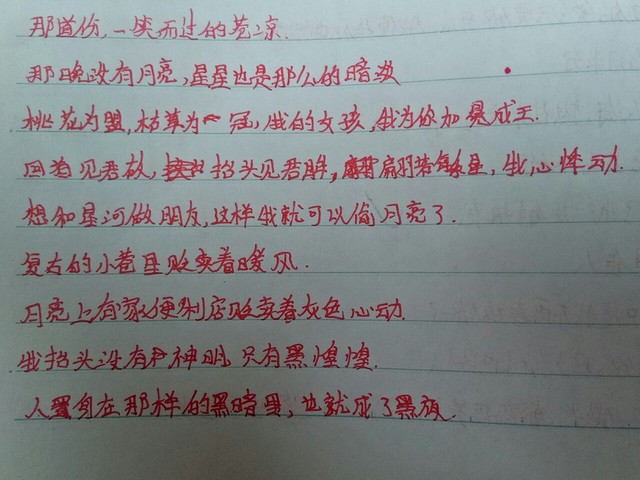 那道伤,一笑而过的苍凉.
那晚没有月亮,星星也是那么的暗淡
桃花为盟,枯草为冠,我的女孩,我为你加冕成王.
回首见君故,抬头见君眸,扇羽若繁星,我心怦动.
想和星河做朋友,这样我就可以偷月亮了.
复古的小巷里贩卖着暖风.
月亮上有家便利店贩卖着灰色心动.
我抬头没有神明,只有黑煌煌.
人置身在那样的黑暗里,也就成了黑夜.